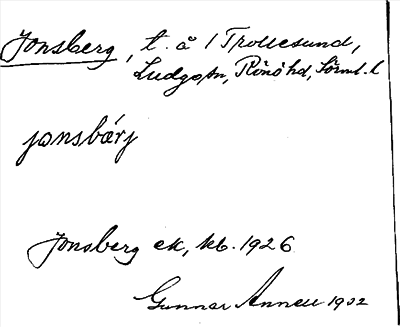 Jonsberg, t. å / Trollesund,
Ludgo sn, Rönö hd, Sörml. l
jonsbärj
Jonsberg ek, kb. 1926
Gunnar Annell 1932